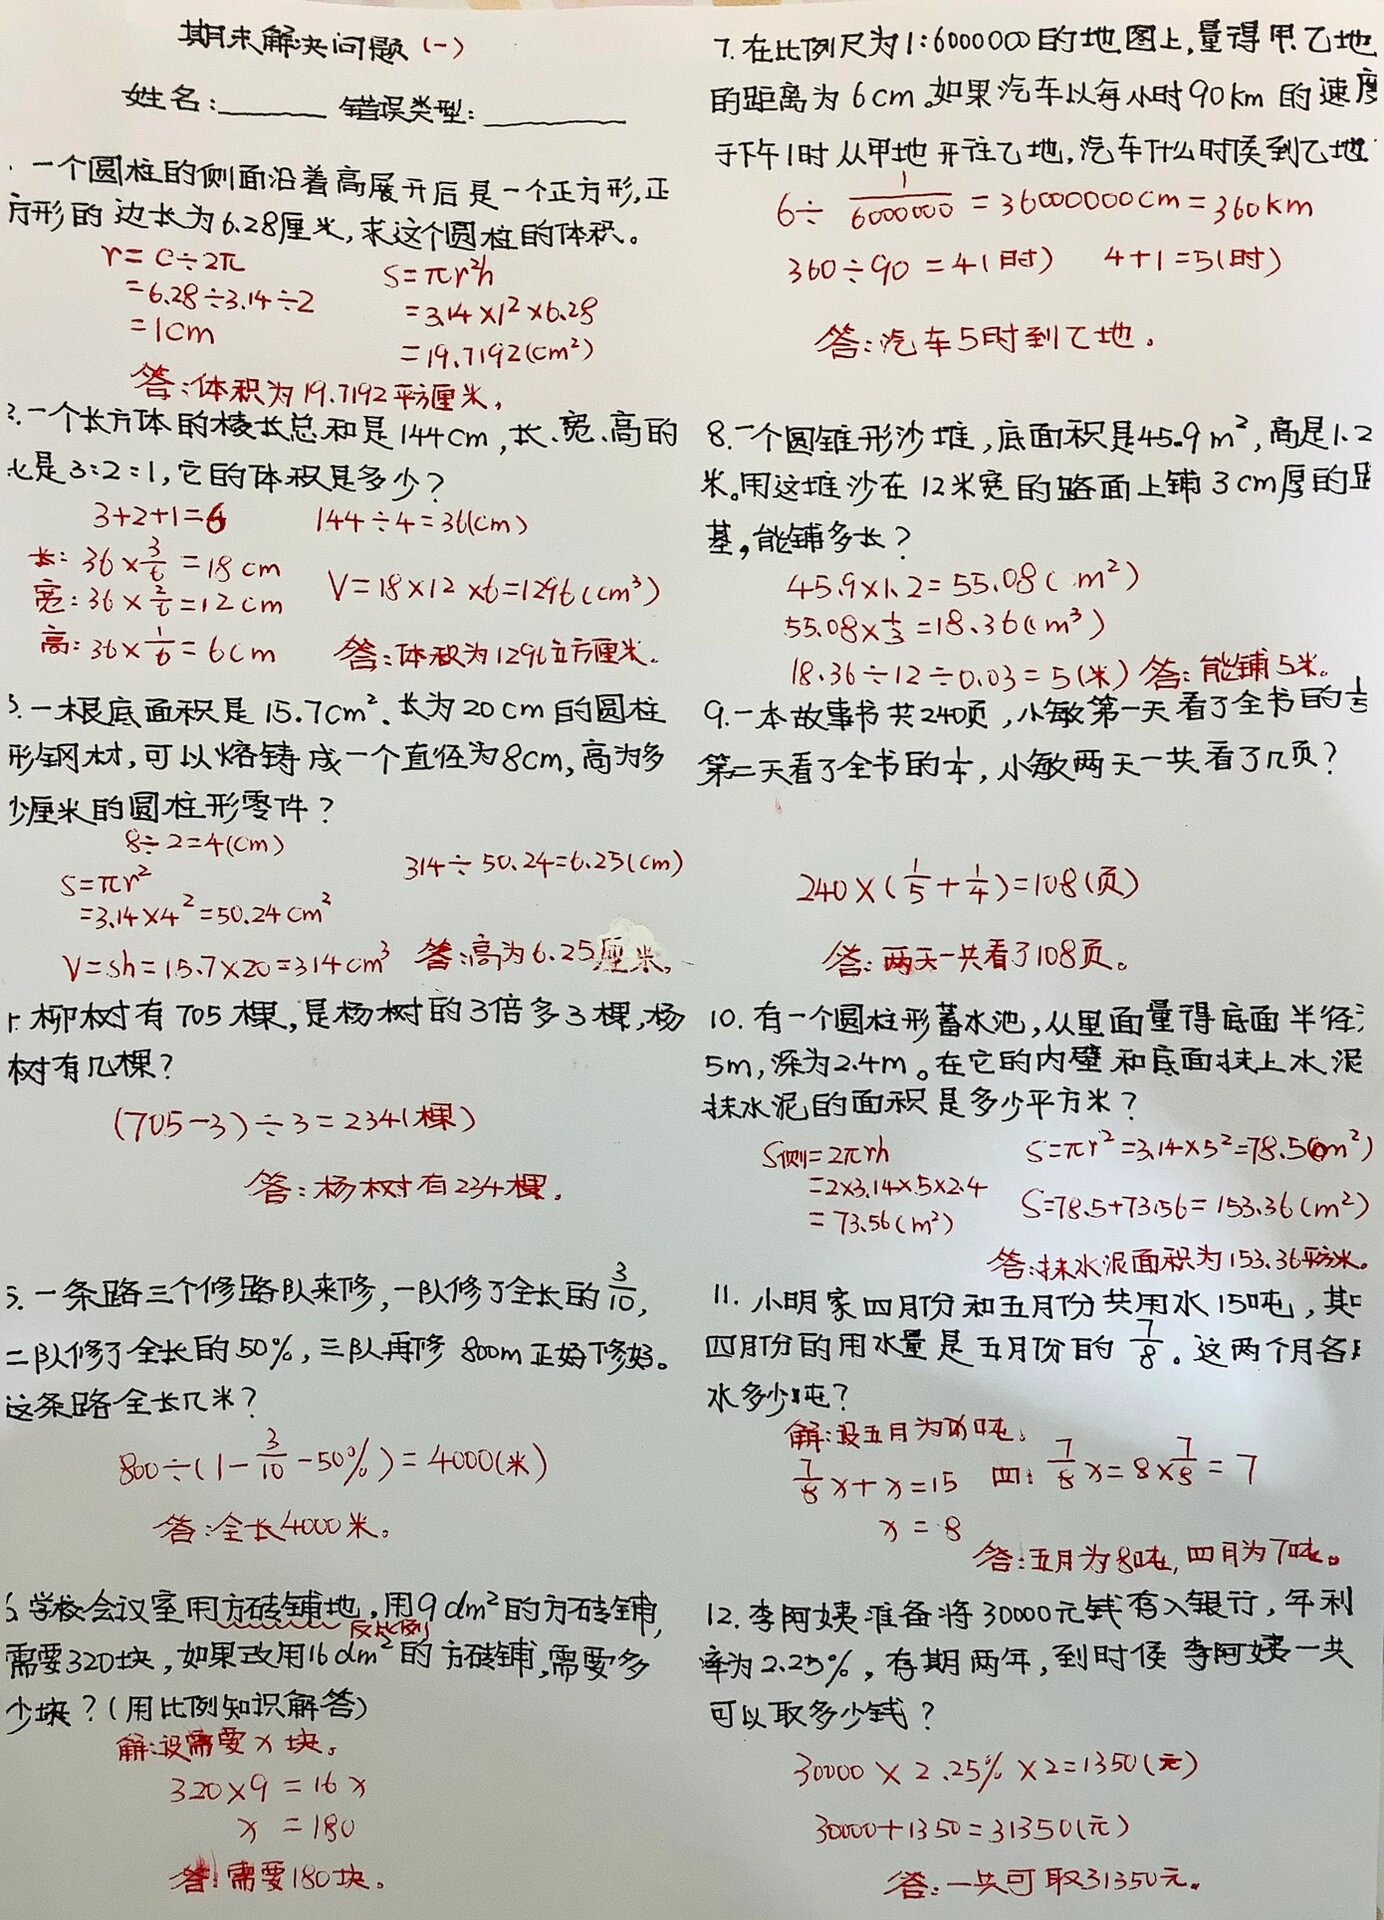 期末解决问题(一)
姓名:______ 错误类型:________
一个圆柱的侧面沿着高展开后是一个正方形,正
方形的边长为6.28厘米,求这个圆柱的体积。
r=C÷2π
=6.28÷3.14÷2
=1cm
S=πr²h
=3.14×1²×6.28
=19.7192(cm²)
答:体积为19.7192平方厘米,
2.一个长方体的棱长总和是144cm,长、宽、高的
比是3:2:1,它的体积是多少?
3+2+1=6
144÷4=36(cm)
长:36×3/6=18cm
宽:36×2/6=12cm
高:36×1/6=6cm
V=18×12×6=1296(cm³)
答:体积为1296立方厘米。
3.一根底面积是15.7cm²、长为20cm的圆柱
形钢材,可以熔铸成一个直径为8cm,高为多
少厘米的圆柱形零件?
8÷2=4(cm)
S=πr²
=3.14×4²=50.24cm²
V=sh=15.7×20=314cm³
314÷50.24=6.25(cm)
答:高为6.25厘米。
柳树有705棵,是杨树的3倍多3棵,杨
树有几棵?
(705-3)÷3=234(棵)
答:杨树有234棵.
5.一条路三个修路队来修,一队修了全长的3/10,
二队修了全长的50%,三队再修800m正好修好。
这条路全长几米?
800÷(1-3/10-50%)=4000(米)
答:全长4000米。
6.学校会议室用方砖铺地,用9dm²的方砖铺,
反比例
需要320块,如果改用16dm²的方砖铺,需要多
少块?(用比例知识解答)
解:设需要x块。
320×9=16x
x=180
答:需要180块。
7.在比例尺为1:6000000的地图上,量得甲乙地
的距离为6cm。如果汽车以每小时90km的速度
于下午1时从甲地开往乙地,汽车什么时候到乙地
6÷1/6000000=36000000cm=360km
360÷90=4(时) 4+1=5(时)
答:汽车5时到乙地.
8.一个圆锥形沙堆,底面积是45.9m²,高是1.2
米。用这堆沙在12米宽的路面上铺3cm厚的路
基,能铺多长?
45.9×1.2=55.08(m²)
55.08×1/3=18.36(m³)
18.36÷12÷0.03=5(米) 答:能铺5米。
9.一本故事书共240页,小敏第一天看了全书的1/5
第二天看了全书的1/4,小敏两天一共看了几页?
240×(1/5+1/4)=108(页)
答:两天一共看了108页。
10.有一个圆柱形蓄水池,从里面量得底面半径
5m,深为2.4m。在它的内壁和底面抹上水泥
抹水泥的面积是多少平方米?
S侧=2πrh
=2×3.14×5×2.4
=73.56(m²)
S=πr²=3.14×5²=78.5(m²)
S=78.5+73.56=153.36(m²)
答:抹水泥面积为153.36平方米。
11.小明家四月份和五月份共用水15吨,其
四月份的用水量是五月份的7/8。这两个月各
水多少吨?
解:设五月为x吨.
7/8x+x=15
x=8
四:7/8x=8×7/8=7
答:五月为8吨,四月为7吨。
12.李阿姨准备将30000元钱存入银行,年利
率为2.25%,存期两年,到时候李阿姨一共
可以取多少钱?
30000×2.25%×2=1350(元)
30000+1350=31350(元)
答:一共可取31350元。